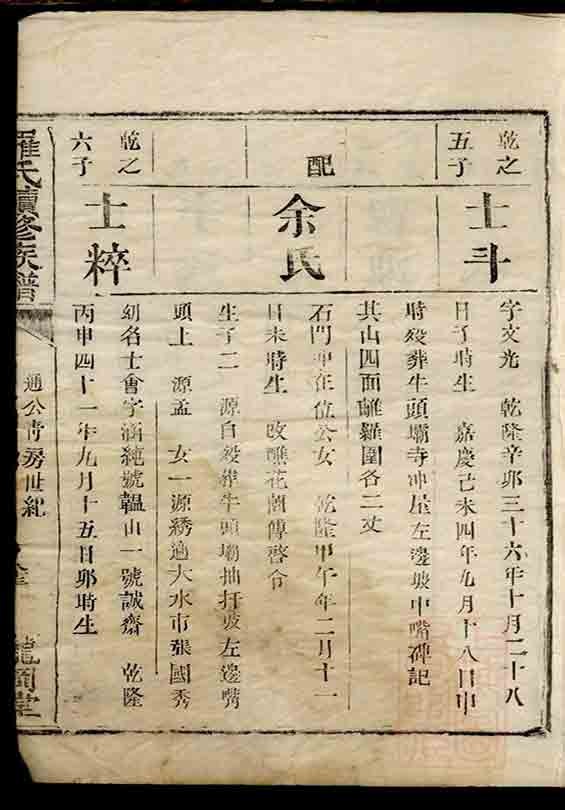 乾之五子
士斗
字文光 乾隆辛卯三十六年十月二十八
日子時生 嘉慶己未四年九月十八日申
時歿葬牛頭壩寺冲屋左邊坡中嘴碑記
其山四面離羅圍各二丈
配
余氏
石門冲在位公女 乾隆甲午年二月十一
日未時生 改醮花園傳啓令
生子二 源自歿葬牛頭壩抽扞坡左邊嘴
頭上 源孟 女一源綉適大水市張國秀
乾之六子
士粹
幼名士會字涵純號韞山一號誠齋 乾隆
丙申四十一年九月十五日卯時生
羅氏續修族譜
通公靑房世紀